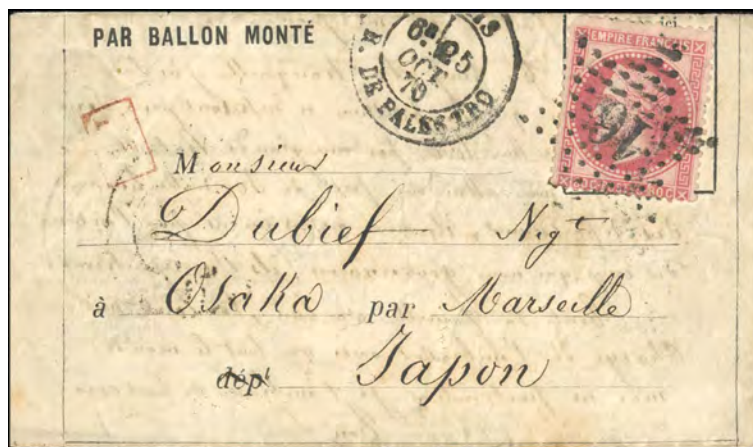 PAR BALLON MONTÉ
6E 25
OCT
70
R. DE PALESTRO
EMPIRE FRANÇAIS
16
Monsieur
Dubief Negt
à Osaka par Marseille
dépt Japon